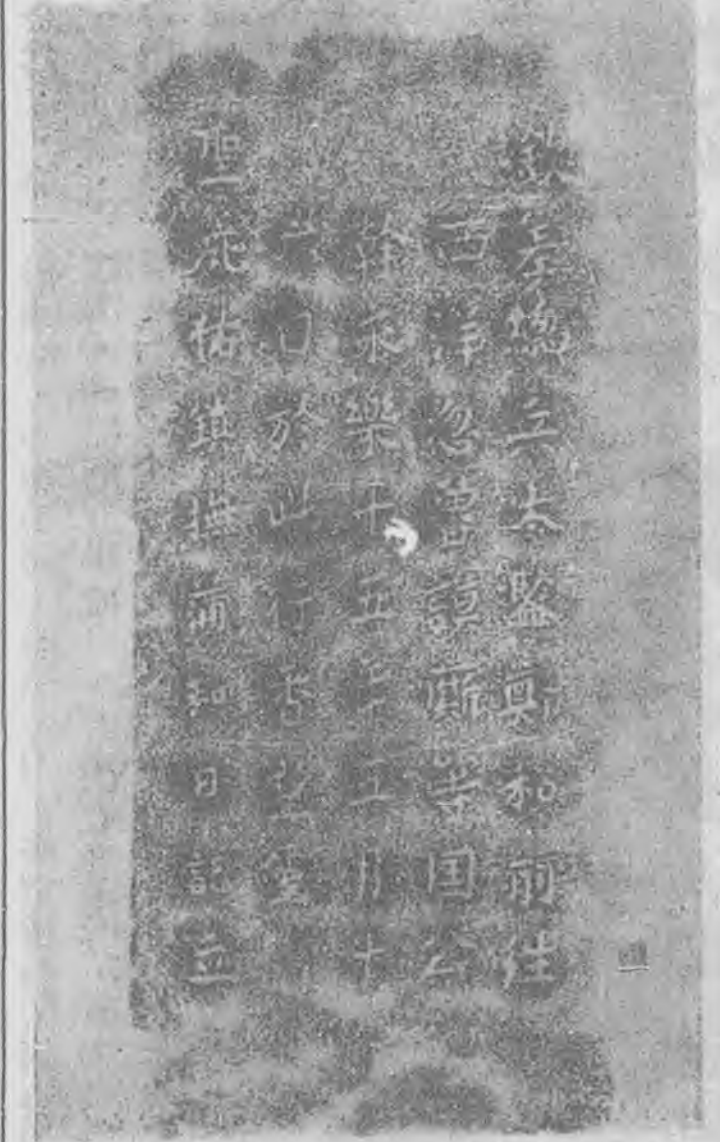 欽差總兵太監鄭和前往
西洋忽魯謨斯等国公
幹永樂十五年五月十
六日於此行香望
靈庇佑鎮撫蒲和日記立